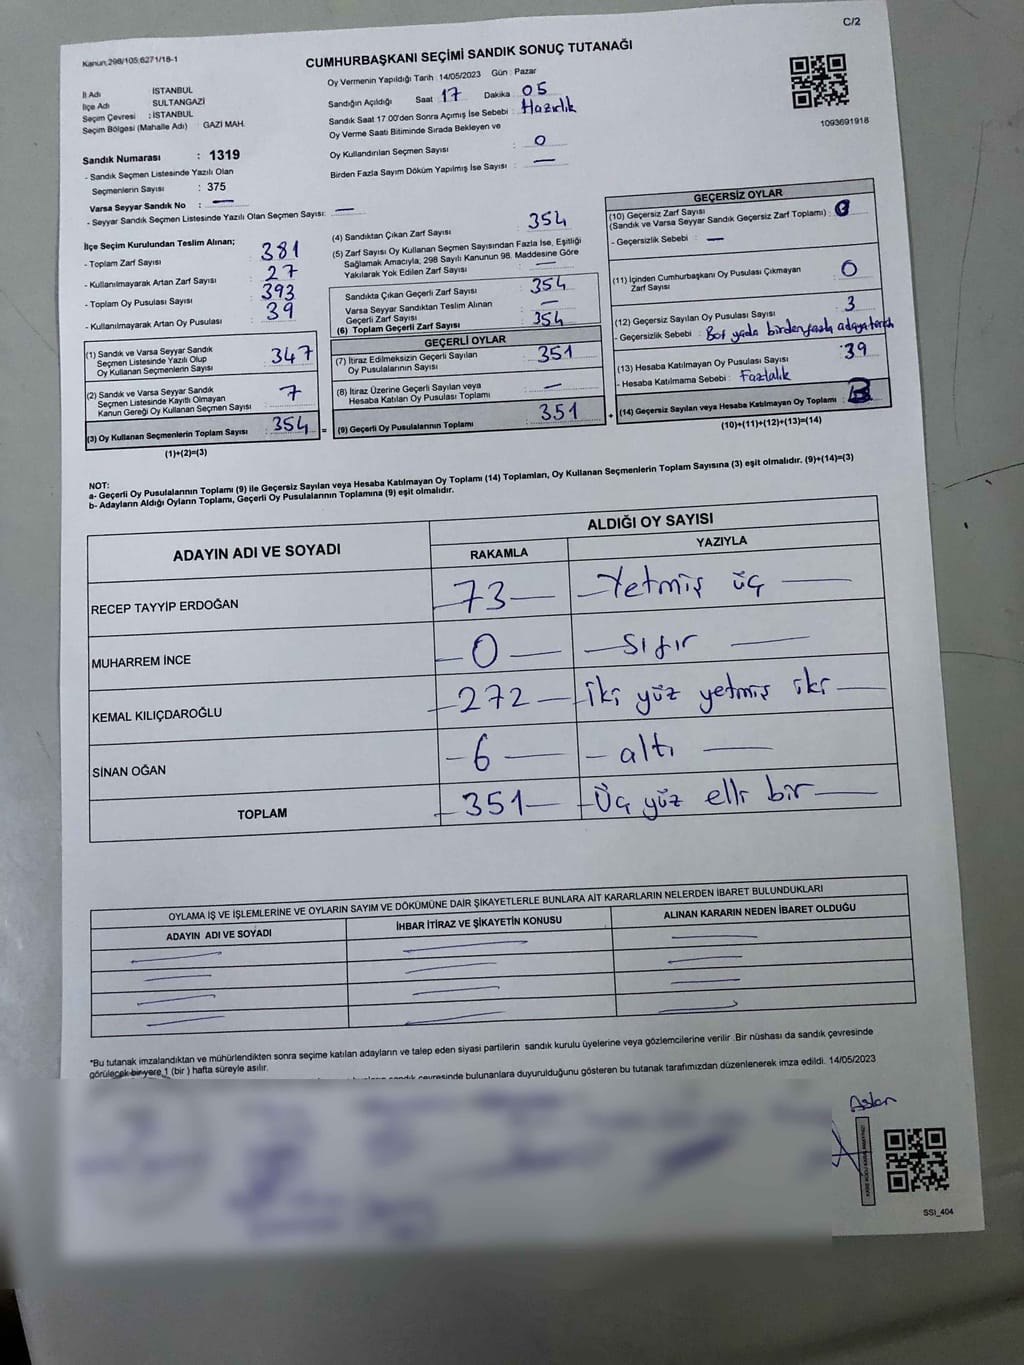 C/2
Kanun;298/105;6271/18-1
CUMHURBAŞKANI SEÇİMİ SANDIK SONUÇ TUTANAĞI
Oy Vermenin Yapıldığı Tarih : 14/05/2023 Gün : Pazar
İl Adı İSTANBUL
İlçe Adı SULTANGAZİ
Seçim Çevresi : İSTANBUL
Seçim Bölgesi (Mahalle Adı) GAZİ MAH.
Sandığın Açıldığı Saat 17 Dakika 05
Sandık Saat 17.00'den Sonra Açımış İse Sebebi : Hazırlık
Oy Verme Saati Bitiminde Sırada Bekleyen ve
Oy Kullandırılan Seçmen Sayısı : 0
Birden Fazla Sayım Döküm Yapılmış İse Sayısı : —
1093691918
Sandık Numarası : 1319
- Sandık Seçmen Listesinde Yazılı Olan
Seçmenlerin Sayısı : 375
Varsa Seyyar Sandık No : —
- Seyyar Sandık Seçmen Listesinde Yazılı Olan Seçmen Sayısı: —
İlçe Seçim Kurulundan Teslim Alınan;
- Toplam Zarf Sayısı 381
- Kullanılmayarak Artan Zarf Sayısı 27
- Toplam Oy Pusulası Sayısı 393
- Kullanılmayarak Artan Oy Pusulası 39
(1) Sandık ve Varsa Seyyar Sandık
Seçmen Listesinde Yazılı Olup
Oy Kullanan Seçmenlerin Sayısı : 347
(2) Sandık ve Varsa Seyyar Sandık
Seçmen Listesinde Kayıtlı Olmayan
Kanun Gereği Oy Kullanan Seçmen Sayısı : 7
(3) Oy Kullanan Seçmenlerin Toplam Sayısı : 354
(1)+(2)=(3)
(4) Sandıktan Çıkan Zarf Sayısı : 354
(5) Zarf Sayısı Oy Kullanan Seçmen Sayısından Fazla İse, Eşitliği
Sağlamak Amacıyla, 298 Sayılı Kanunun 98. Maddesine Göre
Yakılarak Yok Edilen Zarf Sayısı : —
Sandıkta Çıkan Geçerli Zarf Sayısı : 354
Varsa Seyyar Sandıktan Teslim Alınan
Geçerli Zarf Sayısı : —
(6) Toplam Geçerli Zarf Sayısı : 354
GEÇERLİ OYLAR
(7) İtiraz Edilmeksizin Geçerli Sayılan
Oy Pusulalarının Sayısı : 351
(8) İtiraz Üzerine Geçerli Sayılan veya
Hesaba Katılan Oy Pusulası Toplamı : —
= (9) Geçerli Oy Pusulalarının Toplamı : 351 +
GEÇERSİZ OYLAR
(10) Geçersiz Zarf Sayısı
(Sandık ve Varsa Seyyar Sandık Geçersiz Zarf Toplamı) : 0
- Geçersizlik Sebebi : —
(11) İçinden Cumhurbaşkanı Oy Pusulası Çıkmayan
Zarf Sayısı : 0
(12) Geçersiz Sayılan Oy Pusulası Sayısı : 3
- Geçersizlik Sebebi : yada birden fazla adaya
(13) Hesaba Katılmayan Oy Pusulası Sayısı : 39
- Hesaba Katılmama Sebebi : Fazlalık
(14) Geçersiz Sayılan veya Hesaba Katılmayan Oy Toplamı :
(10)+(11)+(12)+(13)=(14)
NOT:
a- Geçerli Oy Pusulalarının Toplamı (9) ile Geçersiz Sayılan veya Hesaba Katılmayan Oy Toplamı (14) Toplamları, Oy Kullanan Seçmenlerin Toplam Sayısına (3) eşit olmalıdır. (9)+(14)=(3)
b- Adayların Aldığı Oyların Toplamı, Geçerli Oy Pusulalarının Toplamına (9) eşit olmalıdır.
ADAYIN ADI VE SOYADI ALDIĞI OY SAYISI
RAKAMLA YAZIYLA
RECEP TAYYİP ERDOĞAN —73— —Yetmiş üç—
MUHARREM İNCE —0— —sıfır—
KEMAL KILIÇDAROĞLU —272— —iki yüz yetmiş iki—
SİNAN OĞAN —6— —altı—
TOPLAM —351— —Üç yüz elli bir—
OYLAMA İŞ VE İŞLEMLERİNE VE OYLARIN SAYIM VE DÖKÜMÜNE DAİR ŞİKAYETLERLE BUNLARA AİT KARARLARIN NELERDEN İBARET BULUNDUKLARI
ADAYIN ADI VE SOYADI İHBAR İTİRAZ VE ŞİKAYETİN KONUSU ALINAN KARARIN NEDEN İBARET OLDUĞU
*Bu tutanak imzalandıktan ve mühürlendikten sonra seçime katılan adayların ve talep eden siyasi partilerin sandık kurulu üyelerine veya gözlemcilerine verilir .Bir nüshası da sandık çevresinde
görülecek bir yere 1 (bir ) hafta süreyle asılır.
sandık çevresinde bulunanlara duyurulduğunu gösteren bu tutanak tarafımızdan düzenlenerek imza edildi. 14/05/2023
Aslan
SSI_404